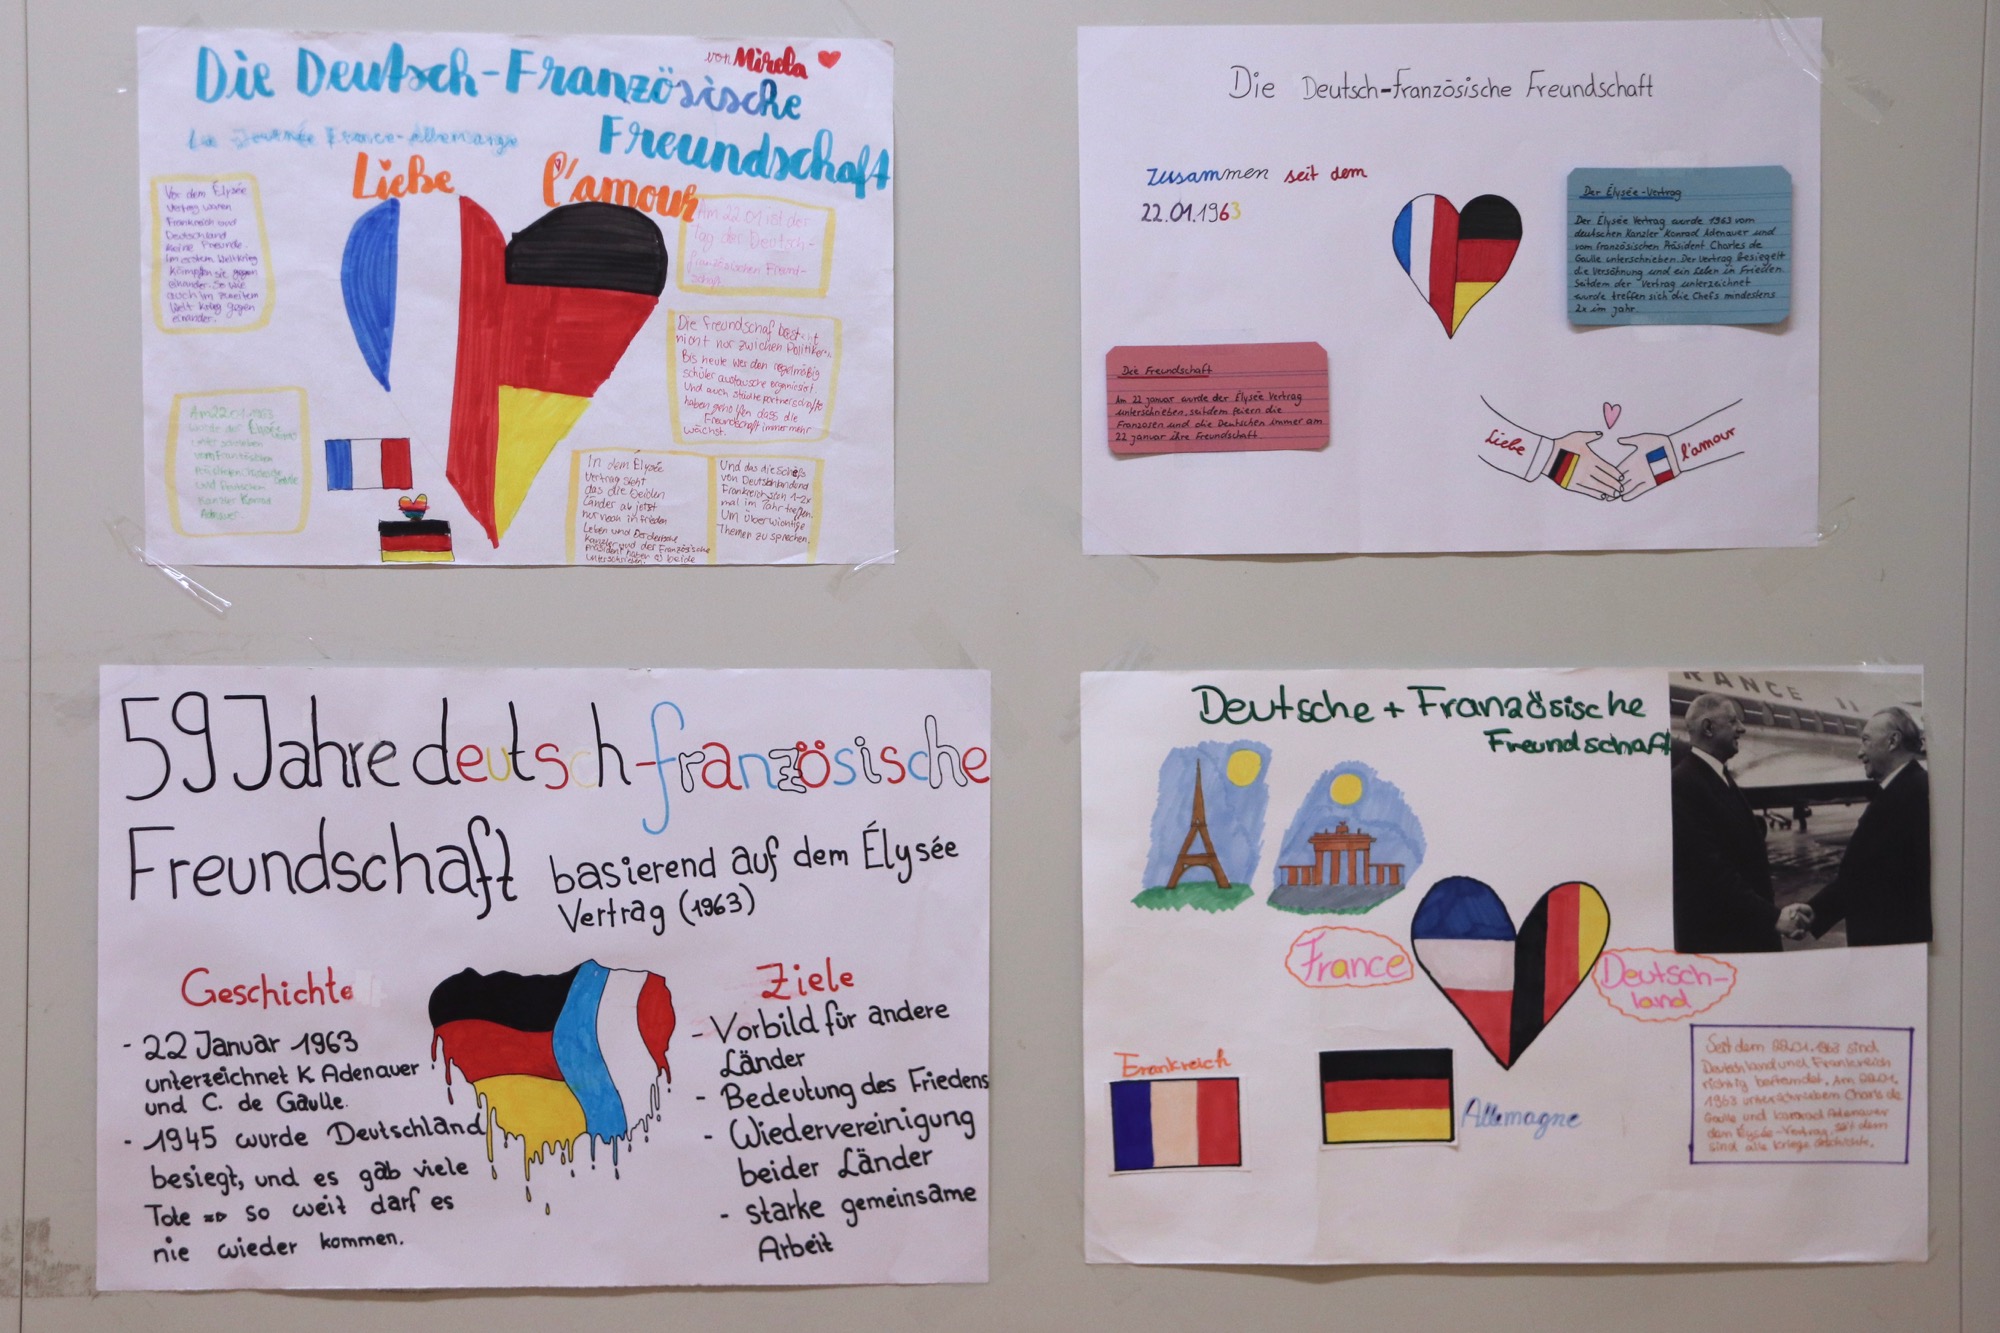 von Mirela
Die Deutsch-Französische
Freundschaft
La Journée Franco-Allemange
Liebe
l'amour
Vor dem Élysée
Vertrag waren
Frankreich und
Deutschland
keine Freunde.
Im erstem Weltkrieg
kämpften sie gegen
einander. So wie
auch im zweitem
Welt krieg gegen
einander.
Am 22.01.1963
wurde der Élysée
unterschrieben
vom Französischen
und Deutschen
Kanzler Konrad
Adenauer.
Am 22.01 ist der
Tag der Deutsch-
französischen Freund-
schaft
Die Freundschaf besteht
nicht nur zwichen Politikern.
Bis heute wer den regelmäßig
schüler austausche organiesiert.
Und auch städtepartnerschafte
haben geholfen dass die
Freundschaft immer mehr
wächst.
In dem Élysée
Vertrag steht
das die beiden
Länder ab jetzt
nur noch in frieden
Leben und der deutsche
Kanzler und der Französische
Präsident haben beide
unterschrieben.
Und das die Schefs
von Deutschland und
Frankreich 1-2x
mal im Jahr treffen.
Um über wichtige
Themen zu sprechen.
Die Deutsch-französische Freundschaft
Zusammen seit dem
22.01.1963
Der Élysée-Vertrag
Der Élysée Vertrag wurde 1963 vom
deutschen Kanzler Konrad Adenauer und
vom französischen Präsident Charles de
Gaulle unterschrieben. Der Vertrag besiegelt
die Versöhnung und ein Leben in Frieden.
Seitdem der Vertrag unterzeichnet
wurde treffen sich die Chefs mindestens
2x im Jahr.
Die Freundschaft
Am 22 januar wurde der Élysée Vertrag
unterschrieben, seitdem feiern die
Franzosen und die Deutschen immer am
22 januar ihre Freundschaft.
Liebe
l'amour
59 Jahre deutsch-französische
Freundschaft basierend auf dem Élysée
Vertrag (1963)
Geschichte
- 22 Januar 1963
unterzeichnet K Adenauer
und C. de Gaulle.
- 1945 wurde Deutschland
besiegt, und es gab viele
Tote => so weit darf es
nie wieder kommen.
Ziele
- Vorbild für andere
Länder
- Bedeutung des Friedens
- Wiedervereinigung
beider Länder
- starke gemeinsame
Arbeit
Deutsche + Französische
Freundschaft
RANCE
France
Deutsch-
land
Frankreich
Allemagne
Seit dem 22.01.1963 sind
Deutschland und Frankreich
richtig befreundet. Am 22.01.
1963 unterschrieben Charls de
Gaulle und Konrad Adenauer
den Élysée-Vertrag, seit dem
sind alle Kriege